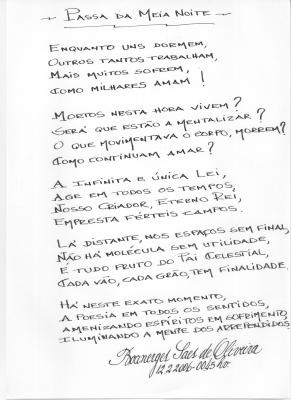 ~ Passa da Meia Noite ~
Enquanto uns dormem,
Outros tantos trabalham,
Mais muitos sofrem,
Como milhares amam!
Mortos nesta hora vivem?
Será que estão a mentalizar?
O que movimentava o corpo, morrem?
Como continuam amar?
A Infinita e Única Lei,
Age em todos os tempos,
Nosso Criador, Eterno Rei,
Empresta férteis campos.
Lá distante, nos espaços sem final,
Não há molécula sem utilidade,
É tudo fruto do Pai Celestial,
Cada vão, cada grão, tem finalidade.
Há neste exato momento,
A poesia em todos os sentidos,
Amenizando espíritos em sofrimento,
Iluminando a mente dos arrependidos.
Boanerges Saes de Oliveira
12.2.2006-00:45 hr.